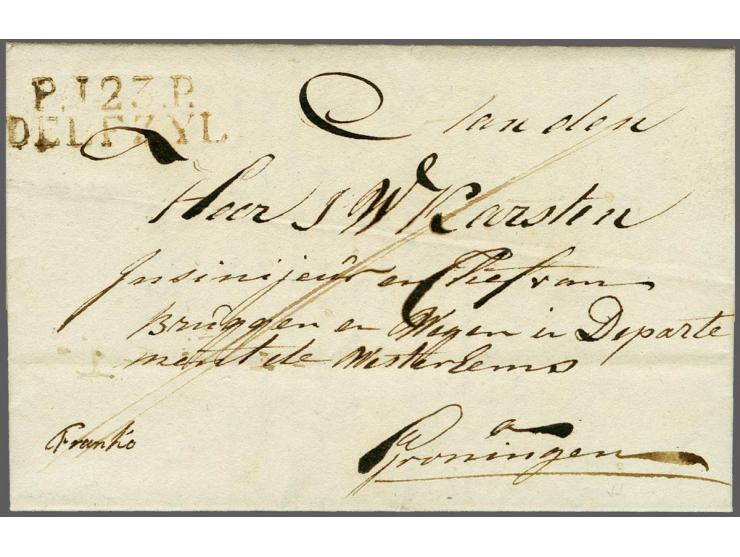 P.123.P.
DELFZYL
Aan den
Heer J W Karsten
Insinijeur en Chef van
Bruggen en Wegen in Departe
ment de Westerlems
a
Groningen
Franko